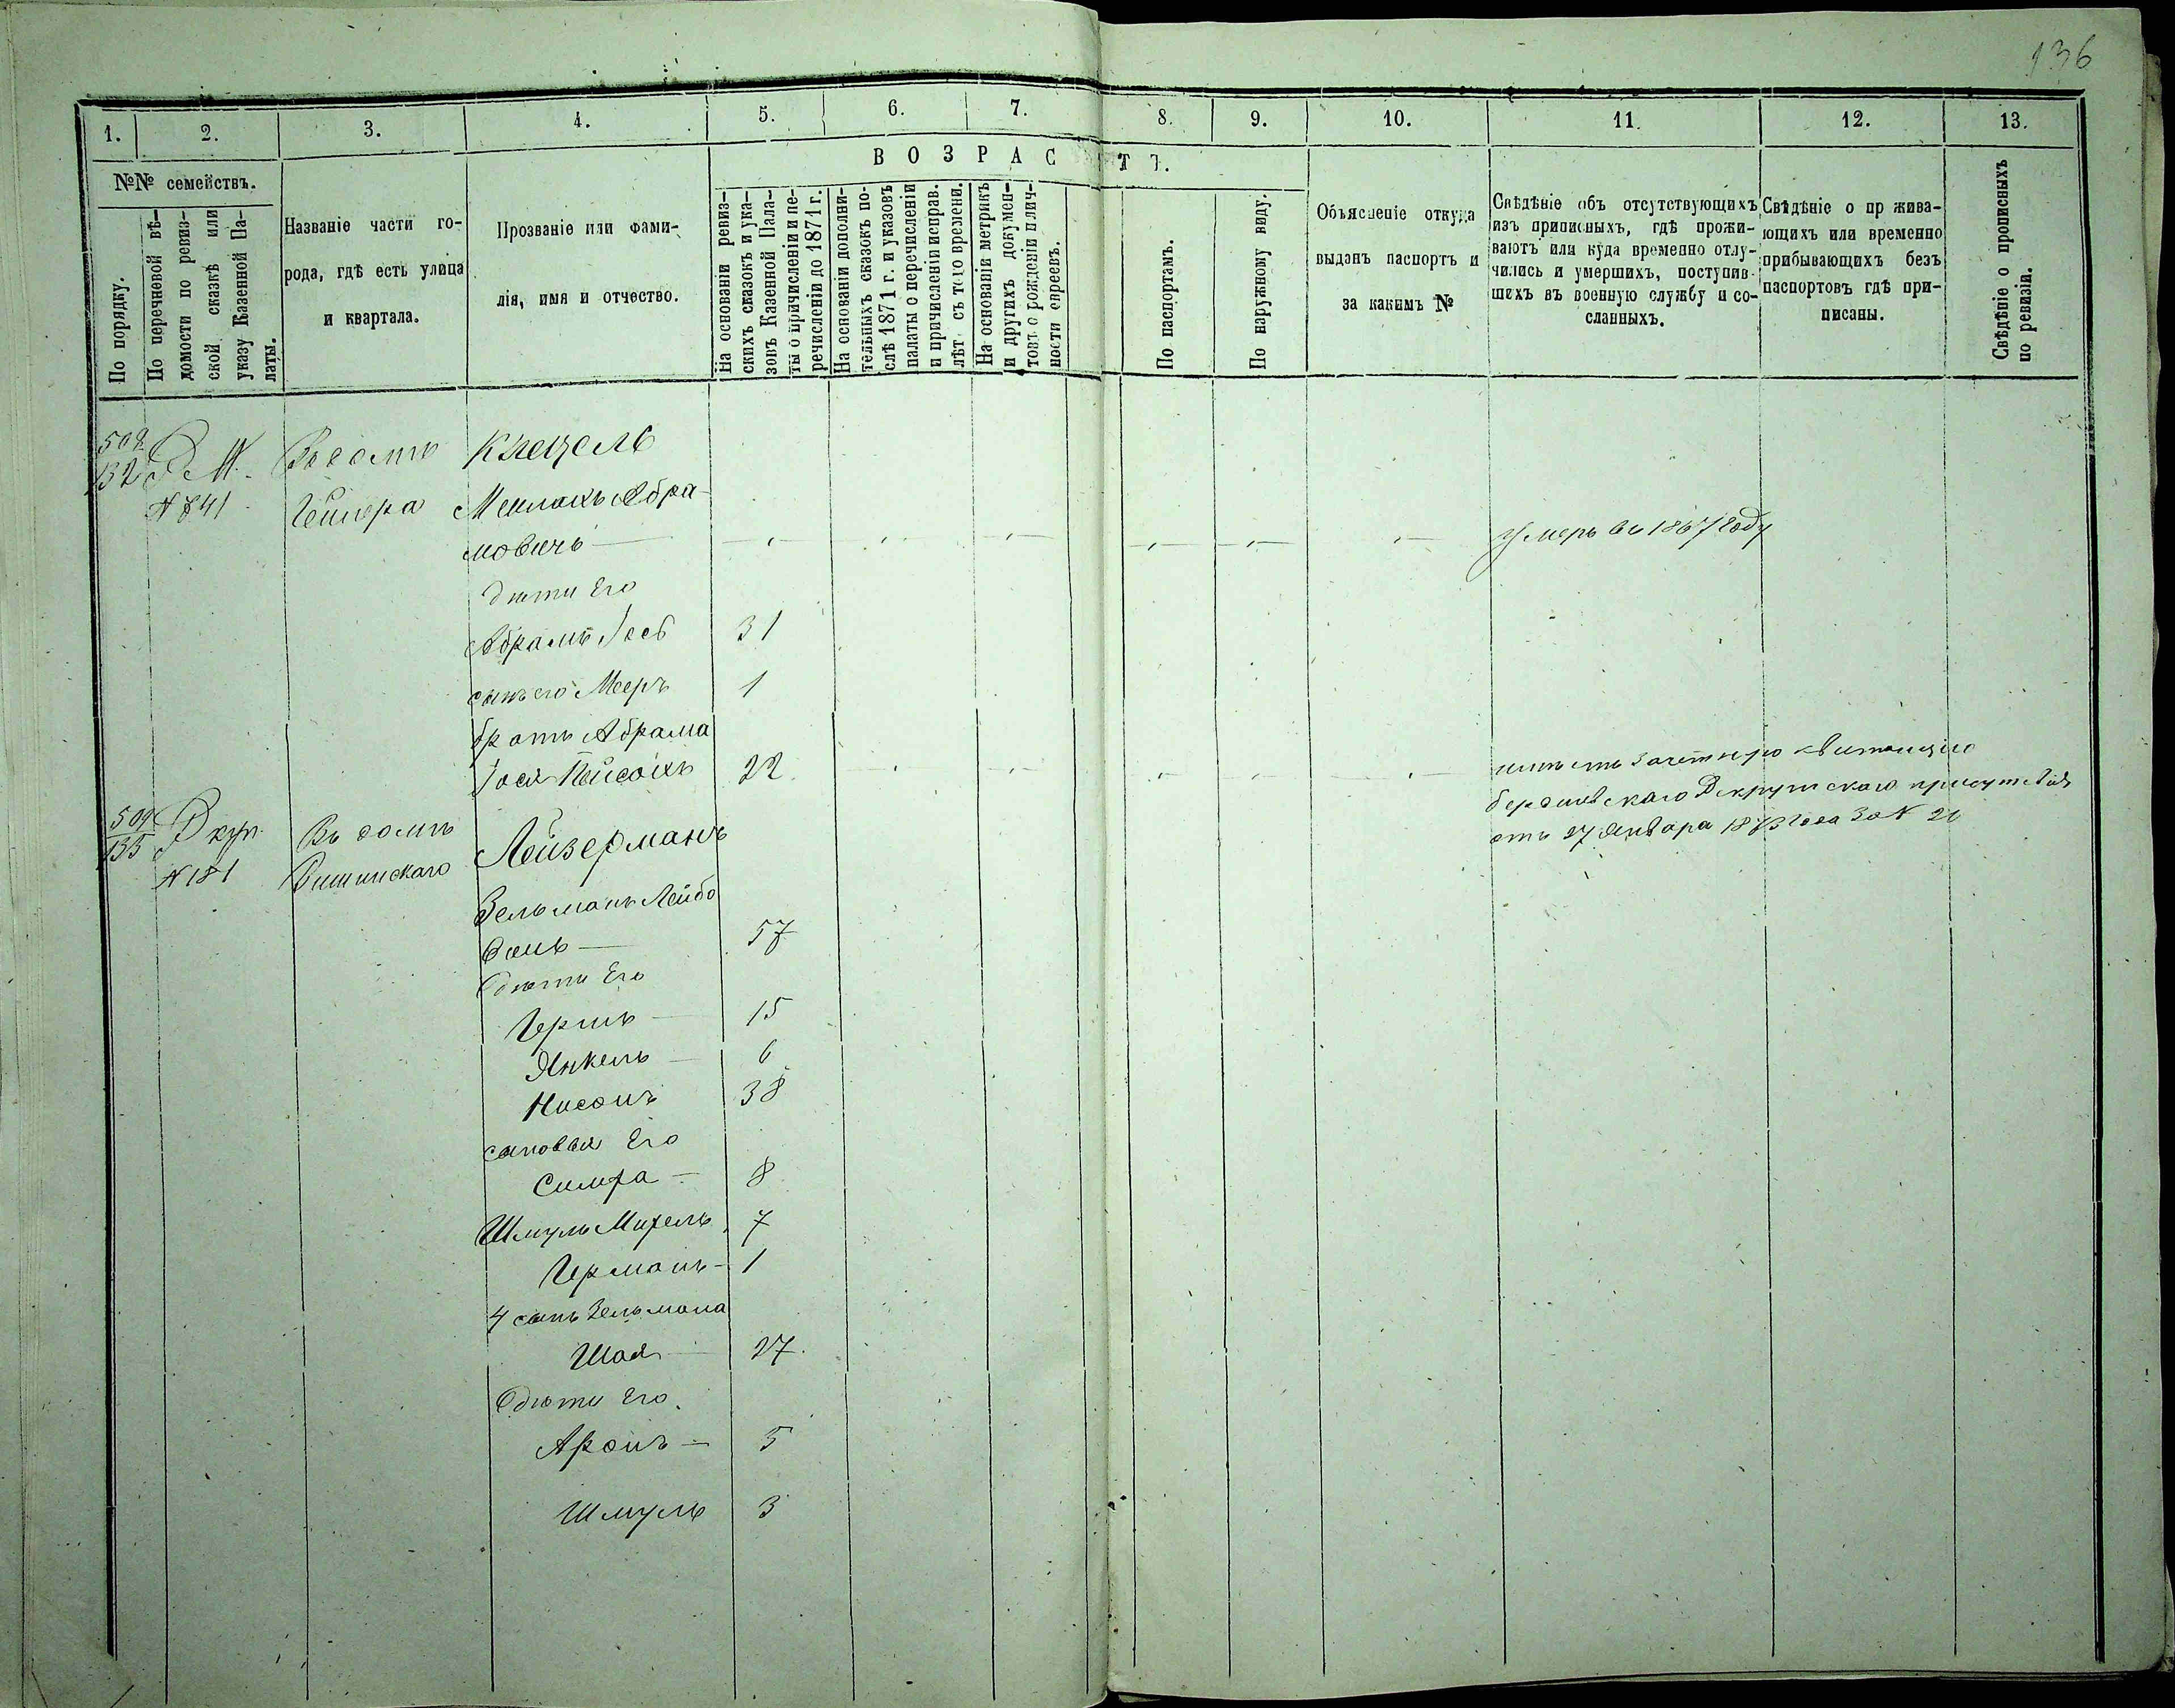 136
1. 2. 3. 4. 5. 6. 7. 8. 9. 10. 11. 12. 13.
№№ семействъ.
По порядку.
По перечневой вѣ-
домости по ревиз-
ской сказкѣ или
указу Казенной Па-
латы.
Названіе части го-
рода, гдѣ есть улица
и квартала.
Прозваніе или фами-
лія, имя и отчество.
ВОЗРАСТЪ.
На основаніи ревиз-
скихъ сказокъ и ука-
зовъ Казенной Пала-
ты о причисленіи и пе-
речисленіи до 1871 г.
На основаніи дополни-
тельныхъ сказокъ по-
слѣ 1871 г. и указовъ
палаты о перечисленіи
и причисленіи исправ.
лѣт съ того времени.
На основаніи метрикъ
и другихъ докумен-
товъ о рожденіи и лич-
ности евреевъ.
По паспортамъ.
По наружному виду.
Объясненіе откуда
выданъ паспортъ и
за какимъ №
Свѣдѣніе объ отсутствующихъ
изъ приписныхъ, гдѣ прожи-
ваютъ или куда временно отлу-
чились и умершихъ, поступив-
шихъ въ военную службу и со-
сланныхъ.
Свѣдѣніе о пр жива-
ющихъ или временно
прибывающихъ безъ
паспортовъ гдѣ при-
писаны.
Свѣдѣніе о прописныхъ
по ревизіи.
508 132 Р М. Въ домѣ Кнецель
№ 841 Мейлахъ Абра-
мовичъ — умеръ въ 1867 году
дѣти Его
Абрамъ Іосъ 31
сынъ его Мееръ 1
братъ Абрама
Іося Пейсахъ 22 имѣетъ зачетную квитанцію
Рекрутскаго присутствія
отъ 27 Января 1873 года за № 21
509 133 Р куп. Въ домѣ Лейзерманъ
№ 181
Зельманъ Лейбо
вичъ — 57
дѣти Его
Гершъ — 15
Янкель — 6
Нисонъ 38
сыновья Его
Симха — 8
Шмуль Михель 7
Германъ — 1
4 сынъ Зельмана
Шая — 27.
дѣти Его.
Аронъ — 5
Шмуль 3